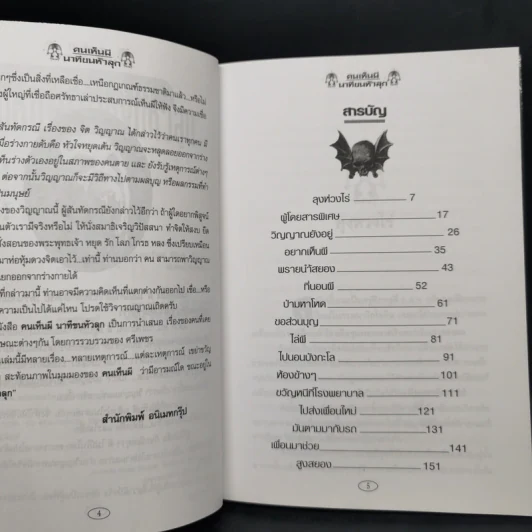 คนเห็นผี
นาทีขนหัวลุก
กๆซึ่งเป็นสิ่งที่เหลือเชื่อ...เหนือกฎเกณฑ์ธรรมชาติมาแล้ว...หรือไม่
ผู้ใหญ่ที่เชื่อถือศรัทธาเล่าประสบการณ์เห็นผีให้ฟัง จึงมีความเชื่อ
สันทัดกรณี เรื่องของ จิต วิญญาณ ได้กล่าวไว้ว่าคนเราทุกคน มี
มื่อร่างกายดับคือ หัวใจหยุดเต้น วิญญาณจะหลุดลอยออกจากร่าง
ห็นร่างตัวเองอยู่ในสภาพของคนตาย และ ยังรับรู้เหตุการณ์ต่างๆ
ต่อจากนั้นวิญญาณก็จะมีวิถีทางไปตามผลบุญ หรือผลกรรมที่ทำ
ป็นมนุษย์
งของวิญญาณนี้ ผู้สันทัดกรณียังกล่าวไว้อีกว่า ถ้าผู้ใดอยากพิสูจน์
นตัวเรามีจริงหรือไม่ ให้นั่งสมาธิเจริญวิปัสสนา ทำจิตให้สงบ ยึด
สั่งสอนของพระพุทธเจ้า หยุด รัก โลภ โกรธ หลง ซึ่งเปรียบเหมือน
มาห่อหุ้มดวงจิตเอาไว้...เท่านี้ ท่านบอกว่า คน สามารถพาวิญญาณ
ยกออกจากร่างกายได้
ที่กล่าวมานี้ ท่านอาจมีความคิดเห็นที่แตกต่างกันออกไป เชื่อ...หรือ
ความเป็นไปได้แค่ไหน โปรดใช้วิจารณญาณเถิดครับ
งสือ คนเห็นผี นาทีขนหัวลุก เป็นการนำเสนอ เรื่องของคนที่เคย
กษณะต่างๆกัน โดยการรวบรวมของ ศรีเพชร
เล่มนี้มีหลายเรื่อง...หลายเหตุการณ์...แต่ละเหตุการณ์ เขย่าขวัญ
สะท้อนภาพในมุมมองของ คนเห็นผี ว่ามีอารมณ์ใด ขณะอยู่ใน
ลุก"
สำนักพิมพ์ อนิเมทกรุ๊ป
4
คนเห็นผี
นาทีขนหัวลุก
สารบัญ
ลุงห่วงไร่ 7
ผู้โดยสารพิเศษ 17
วิญญาณยังอยู่ 26
อยากเห็นผี 35
พรายน้ำสยอง 43
ที่นอนผี 52
ป้ามหาโหด 61
ขอส่วนบุญ 71
ไล่ผี 81
ไปนอนบังกะโล 91
ห้องข้างๆ 101
ขวัญหนีที่โรงพยาบาล 111
ไปส่งเพื่อนใหม่ 121
มันตามมากับรถ 131
เพื่อนมาช่วย 141
สูงสยอง 151
5